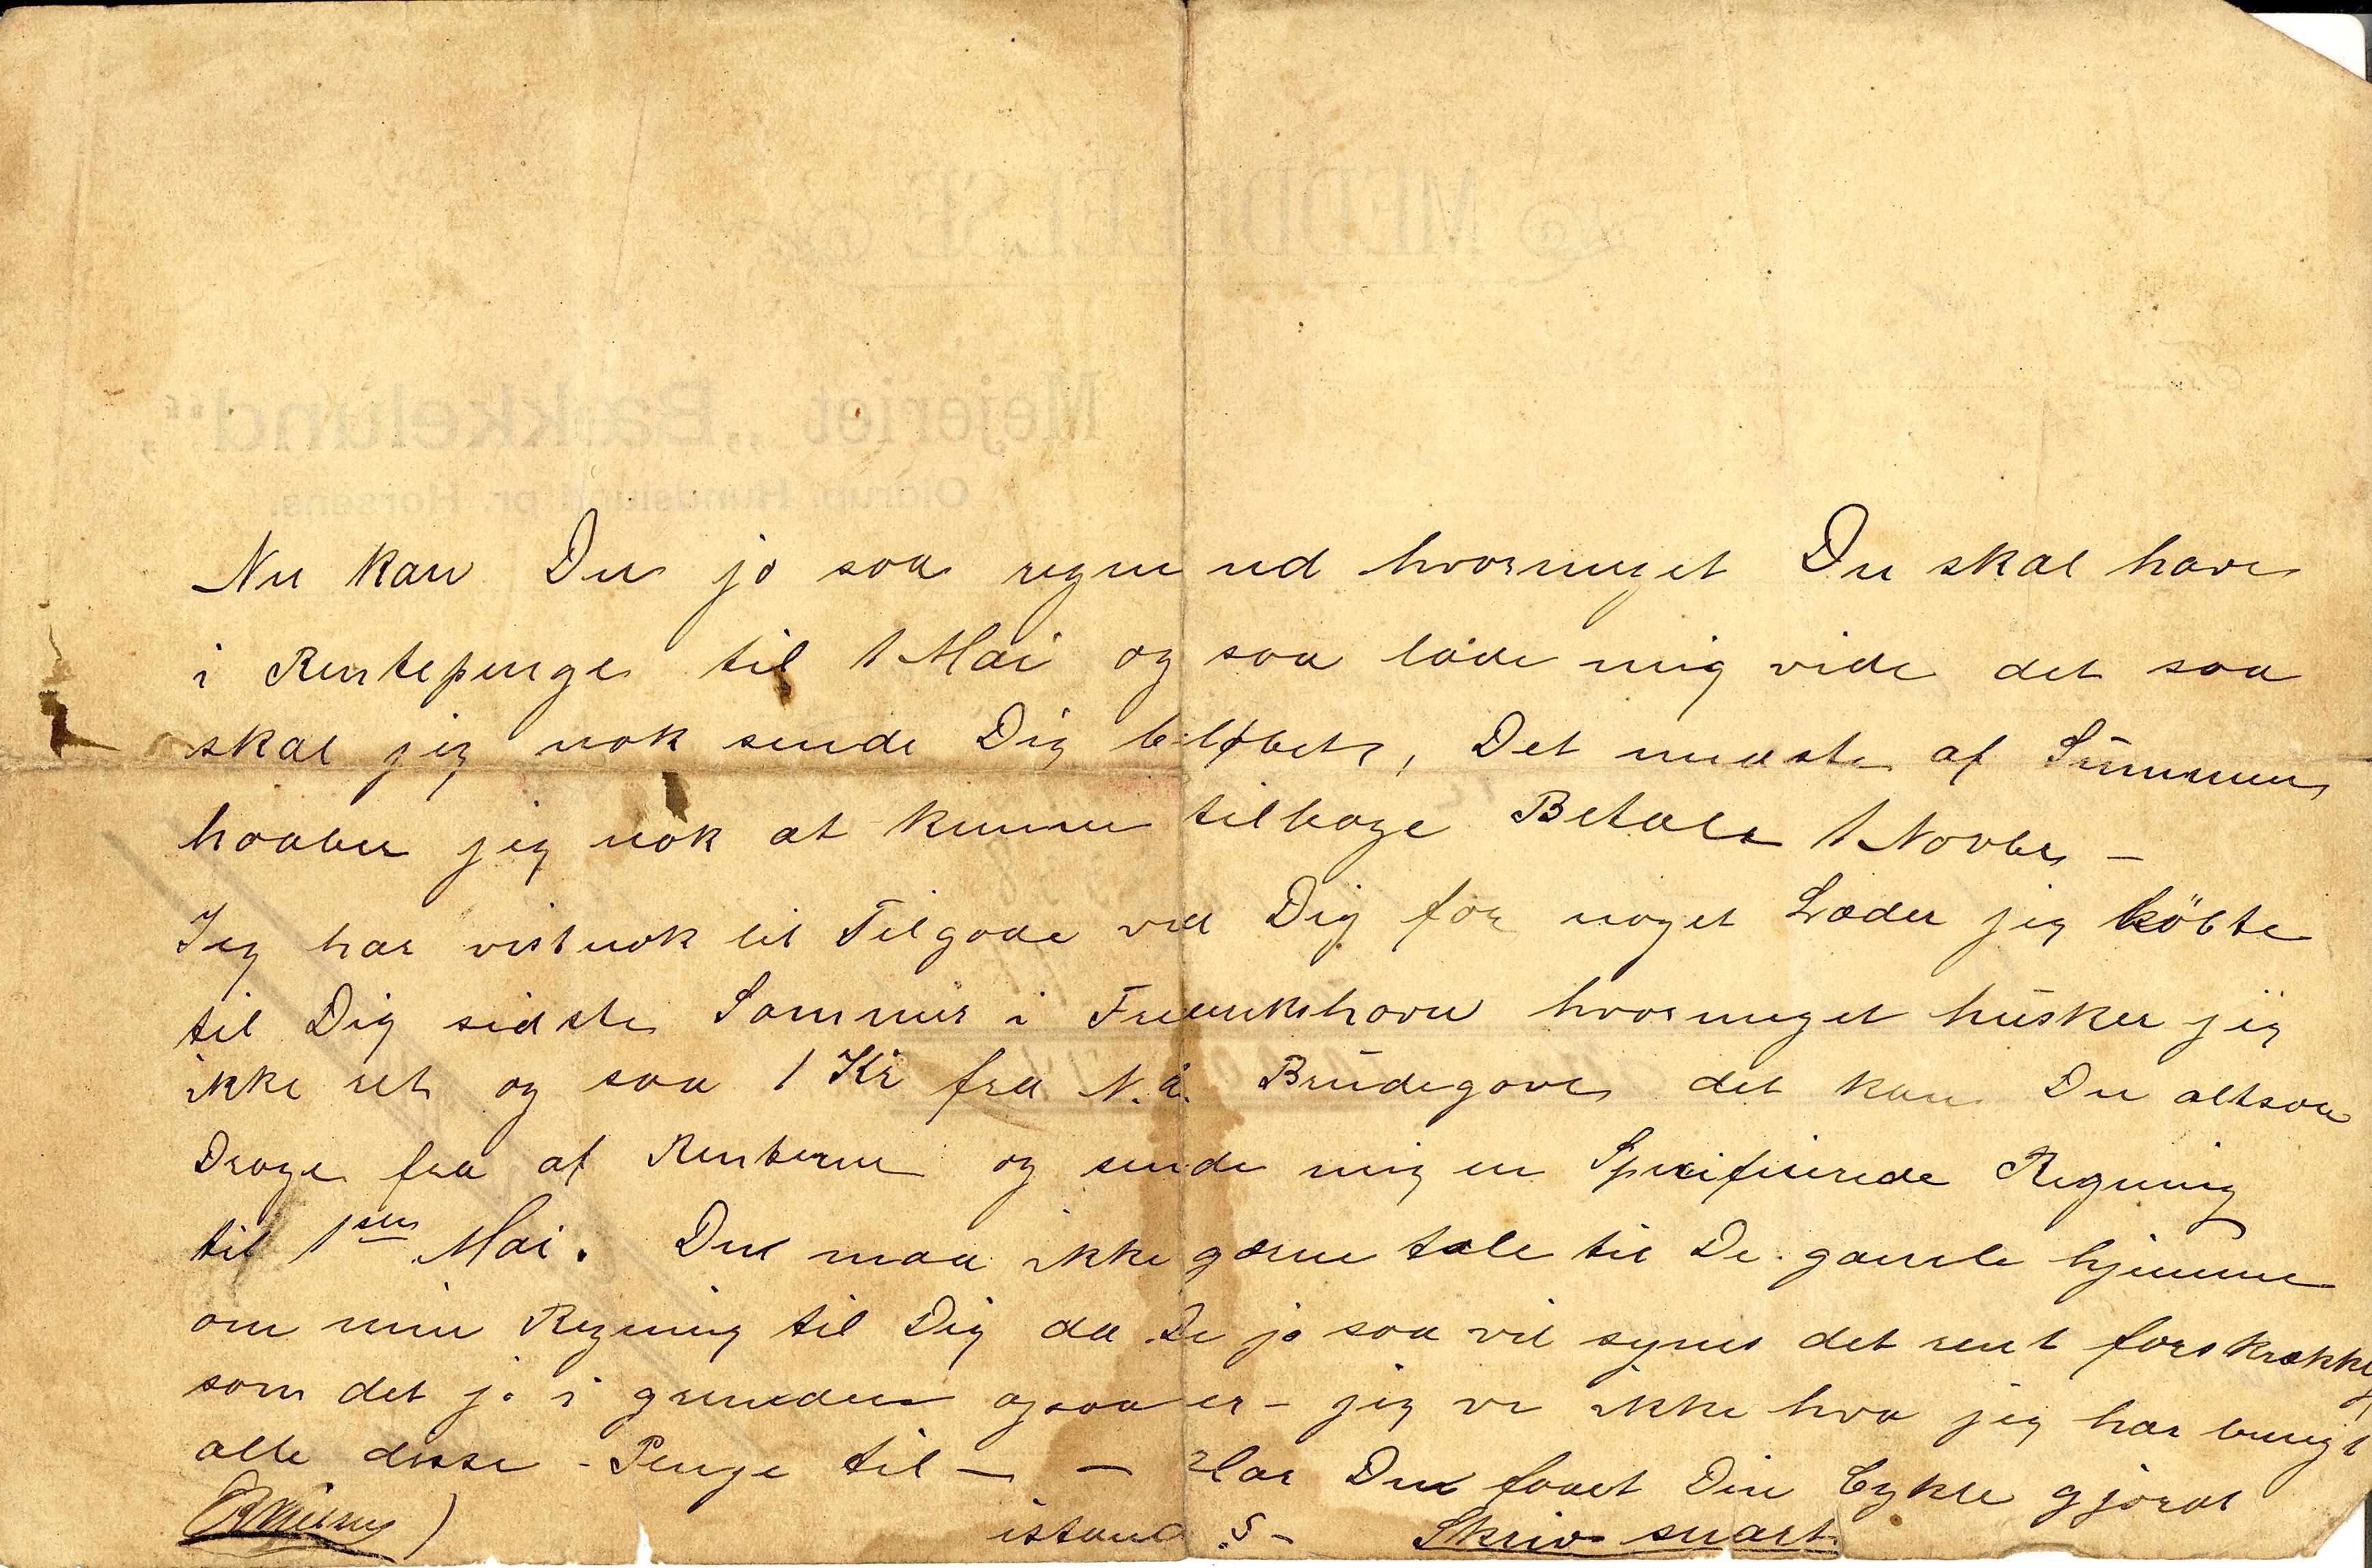 MEDDELELSE
Mejeriet „Bækkelund“,
Oldrup, Hundslund pr. Horsens.
Nu kan Du jo saa regne ud hvormeget Du skal have
i Rentepenge til 1 Mai og saa lade mig vide det saa
skal jeg nok sende Dig beløbet, Det meeste af Summen
haaber jeg nok at kunne tilbage Betale 1 Novbr –
Jeg har vistnok lit Tilgode ved Dig for noget Læder jeg köbte
til Dig sidste Sommer i Frederikshavn hvormeget husker jeg
ikke ret og saa 1 Kr fra N.A. Brudegave det kan Du altsaa
Drage fra af Renterne og sende mig en Specifiserede Regning
til 1sten Mai. Du maa ikke gærne tale til De gamle hjemme
om min Regning til Dig da De jo saa vil synes det rent forskrækkelig
som det jo i grunden ogsaa er – jeg ve ikke hva jeg har brugt
alle disse - Penge til — — Har Du faaet Din Cykle gjordt
istand ? – Skriv snart.